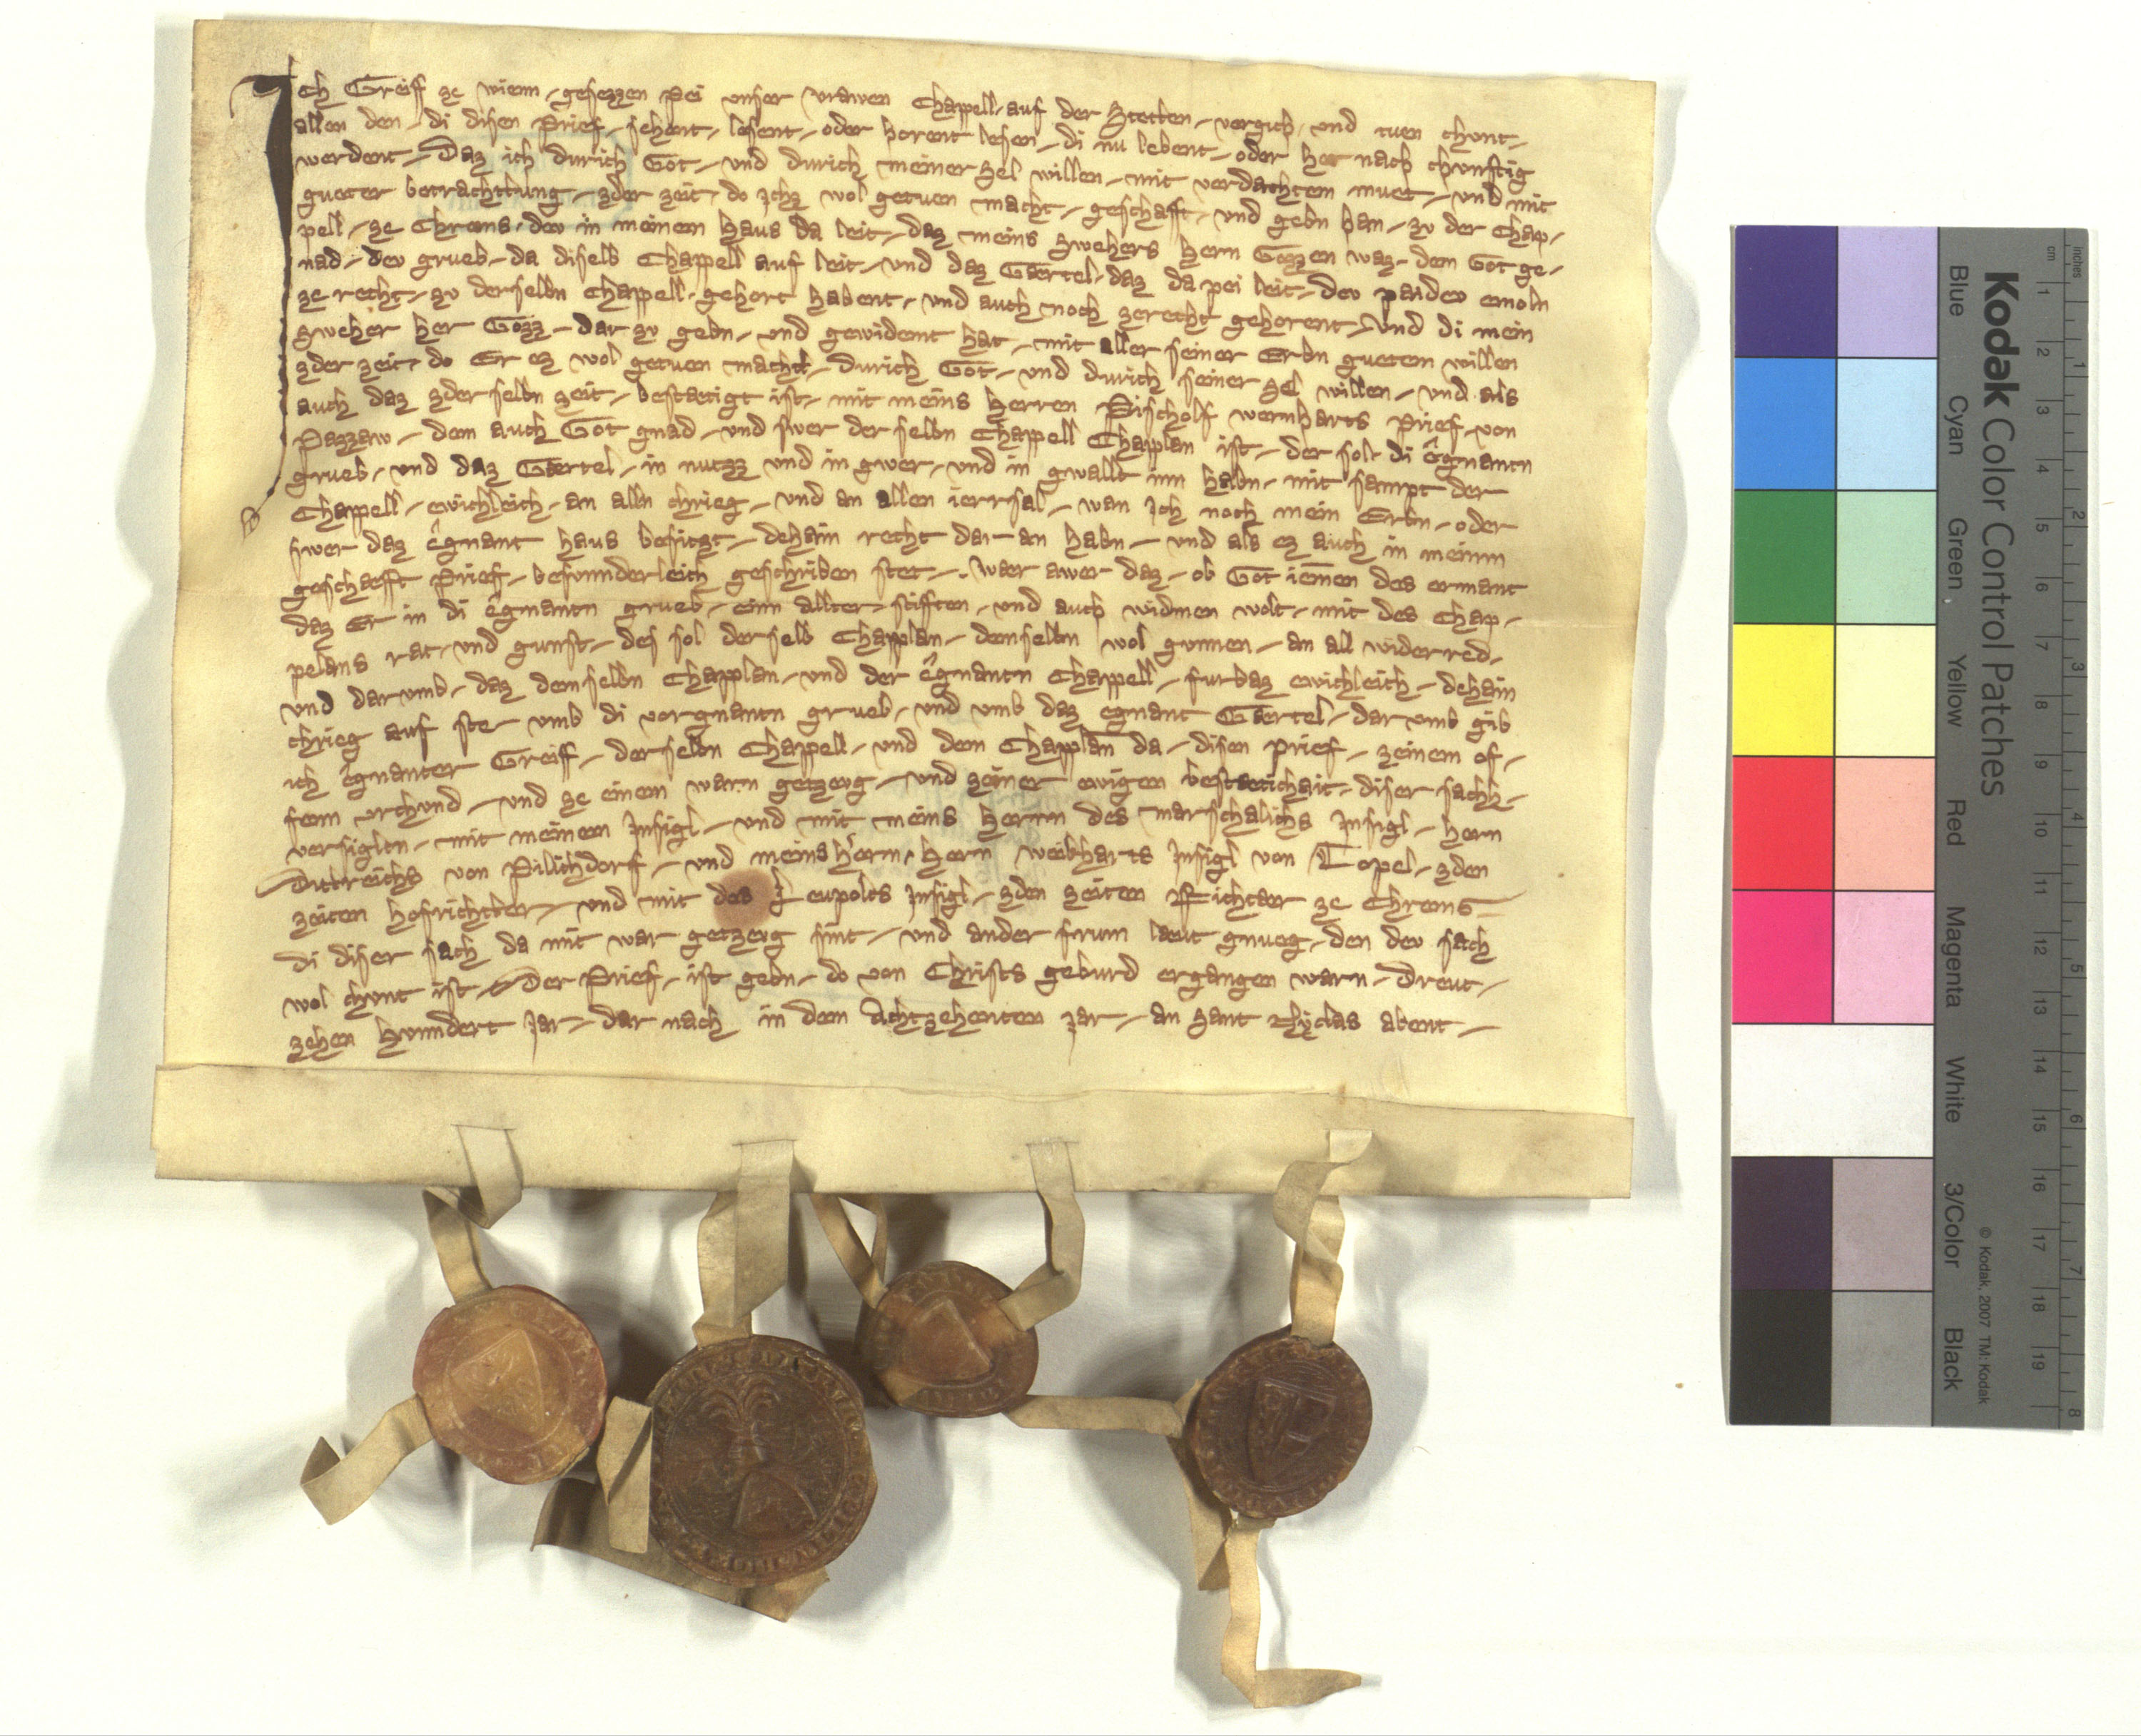 Ich Greiff ze wienn, gesezzen Pei vnser vrawen Chappell, auf der Stetten, vergich, vnd tuen chvnt,
allen den, di disen Prief, sehent, lesent, oder horent lesen, di nu lebent, oder her nach chvnftig
werdent, Daz ich durich Got, vnd durich meiner Sel willen, mit verdachtem muet, vnd mit
gueter betrachttung, zder zeit, do ichz wol getuen macht, geschafft, vnd gebn han, zv der Chap,
pell, ze Chrems, dev in meinem Haus da leit, daz meins Swehers Hern Gozzen waz, dem Got ge,
nad, dev grueb, da diselb Chappell auf leit, vnd daz Gærtel, daz da pei leit, dev paidev emoln
ze recht, zv derselbn Chappell, gehort habent, vnd auch noch zerecht gehorent, Vnd di mein
Sweher Her Gozz, dar zv gebn, vnd gewidemt hat, mit aller seiner Erbn guetem willen
zder zeit, do Er ez wol getuen macht, durich Got, vnd durich seiner Sel willen, vnd als
auch daz zderselbn zeit, bestætigt ist, mit meins Herren Pischolf wernharts Prief, von
Pazzaw, dem auch Got gnad, vnd swer der selbn Chappell Chapplan ist, der sol di êgnantn
grueb, vnd daz Gærtel, in nutzz vnd in gwer, vnd in gwallt inn habn, mit sampt der
Chappell, ewichleich, an alln chrieg, vnd an allen ierrsal, wan Ich noch mein Erbn, oder
swer daz êgnant Haus besitzt, dehain recht dar an habn, vnd als ez auch in meinm
geschæfft Prief, besvnnderleich geschriben stet, Wær awer daz, ob Got iemen des ermant
daz Er in di êgnantn grueb, einn allter, stifften, vnd auch widmen wolt, mit des Chap,
pelans rat, vnd gunst, des sol derselb Chapplan, demselbn wol gvnnen, an all widerred,
vnd darvmb, daz demselbn Chapplan, vnd der êgnantn Chappell, furbaz ewichleich, dehain
chrieg auf ste, vmb di vorgnantn grueb, vnd vmb daz egnant Gærtel, dar vmb gib
ich êgnanter Greiff, derselbn Chappell, vnd dem Chapplan da, disen prief, zeinem of,
fenn vrchvnd, vnd ze einem warn getzevg, vnd zeiner ewigen bestætichait, diser sach,
versigltn, mit meinem Insigl, vnd mit meins Herrn des Marschalichs Insigl, Hern
Dittreichs von Pilichdorf, vnd meins Hern, Hern weikharts Insigl von Topel, zden
zeiten Hofrichtter, vnd mit des Leupolts Insigl, zden zeiten Richtær ze Chrems,
di diser sach da mit war getzevg sint, vnd ander frum læut gnueg, den dev sach
wol chvnt ist, Der Prief, ist gebn, do von Christs geburd ergangen warn, Dreut,
zehen Hvnndert Jar, dar nach in dem Achtzehenten Jar, an Sant Nyclas abent,
Kodak Color Control Patches
Blue Cyan Green Yellow Red Magenta White 3/Color Black
© Kodak, 2007 TM: Kodak
cm 1 2 3 4 5 6 7 8 9 10 11 12 13 14 15 16 17 18 19
inches 1 2 3 4 5 6 7 8